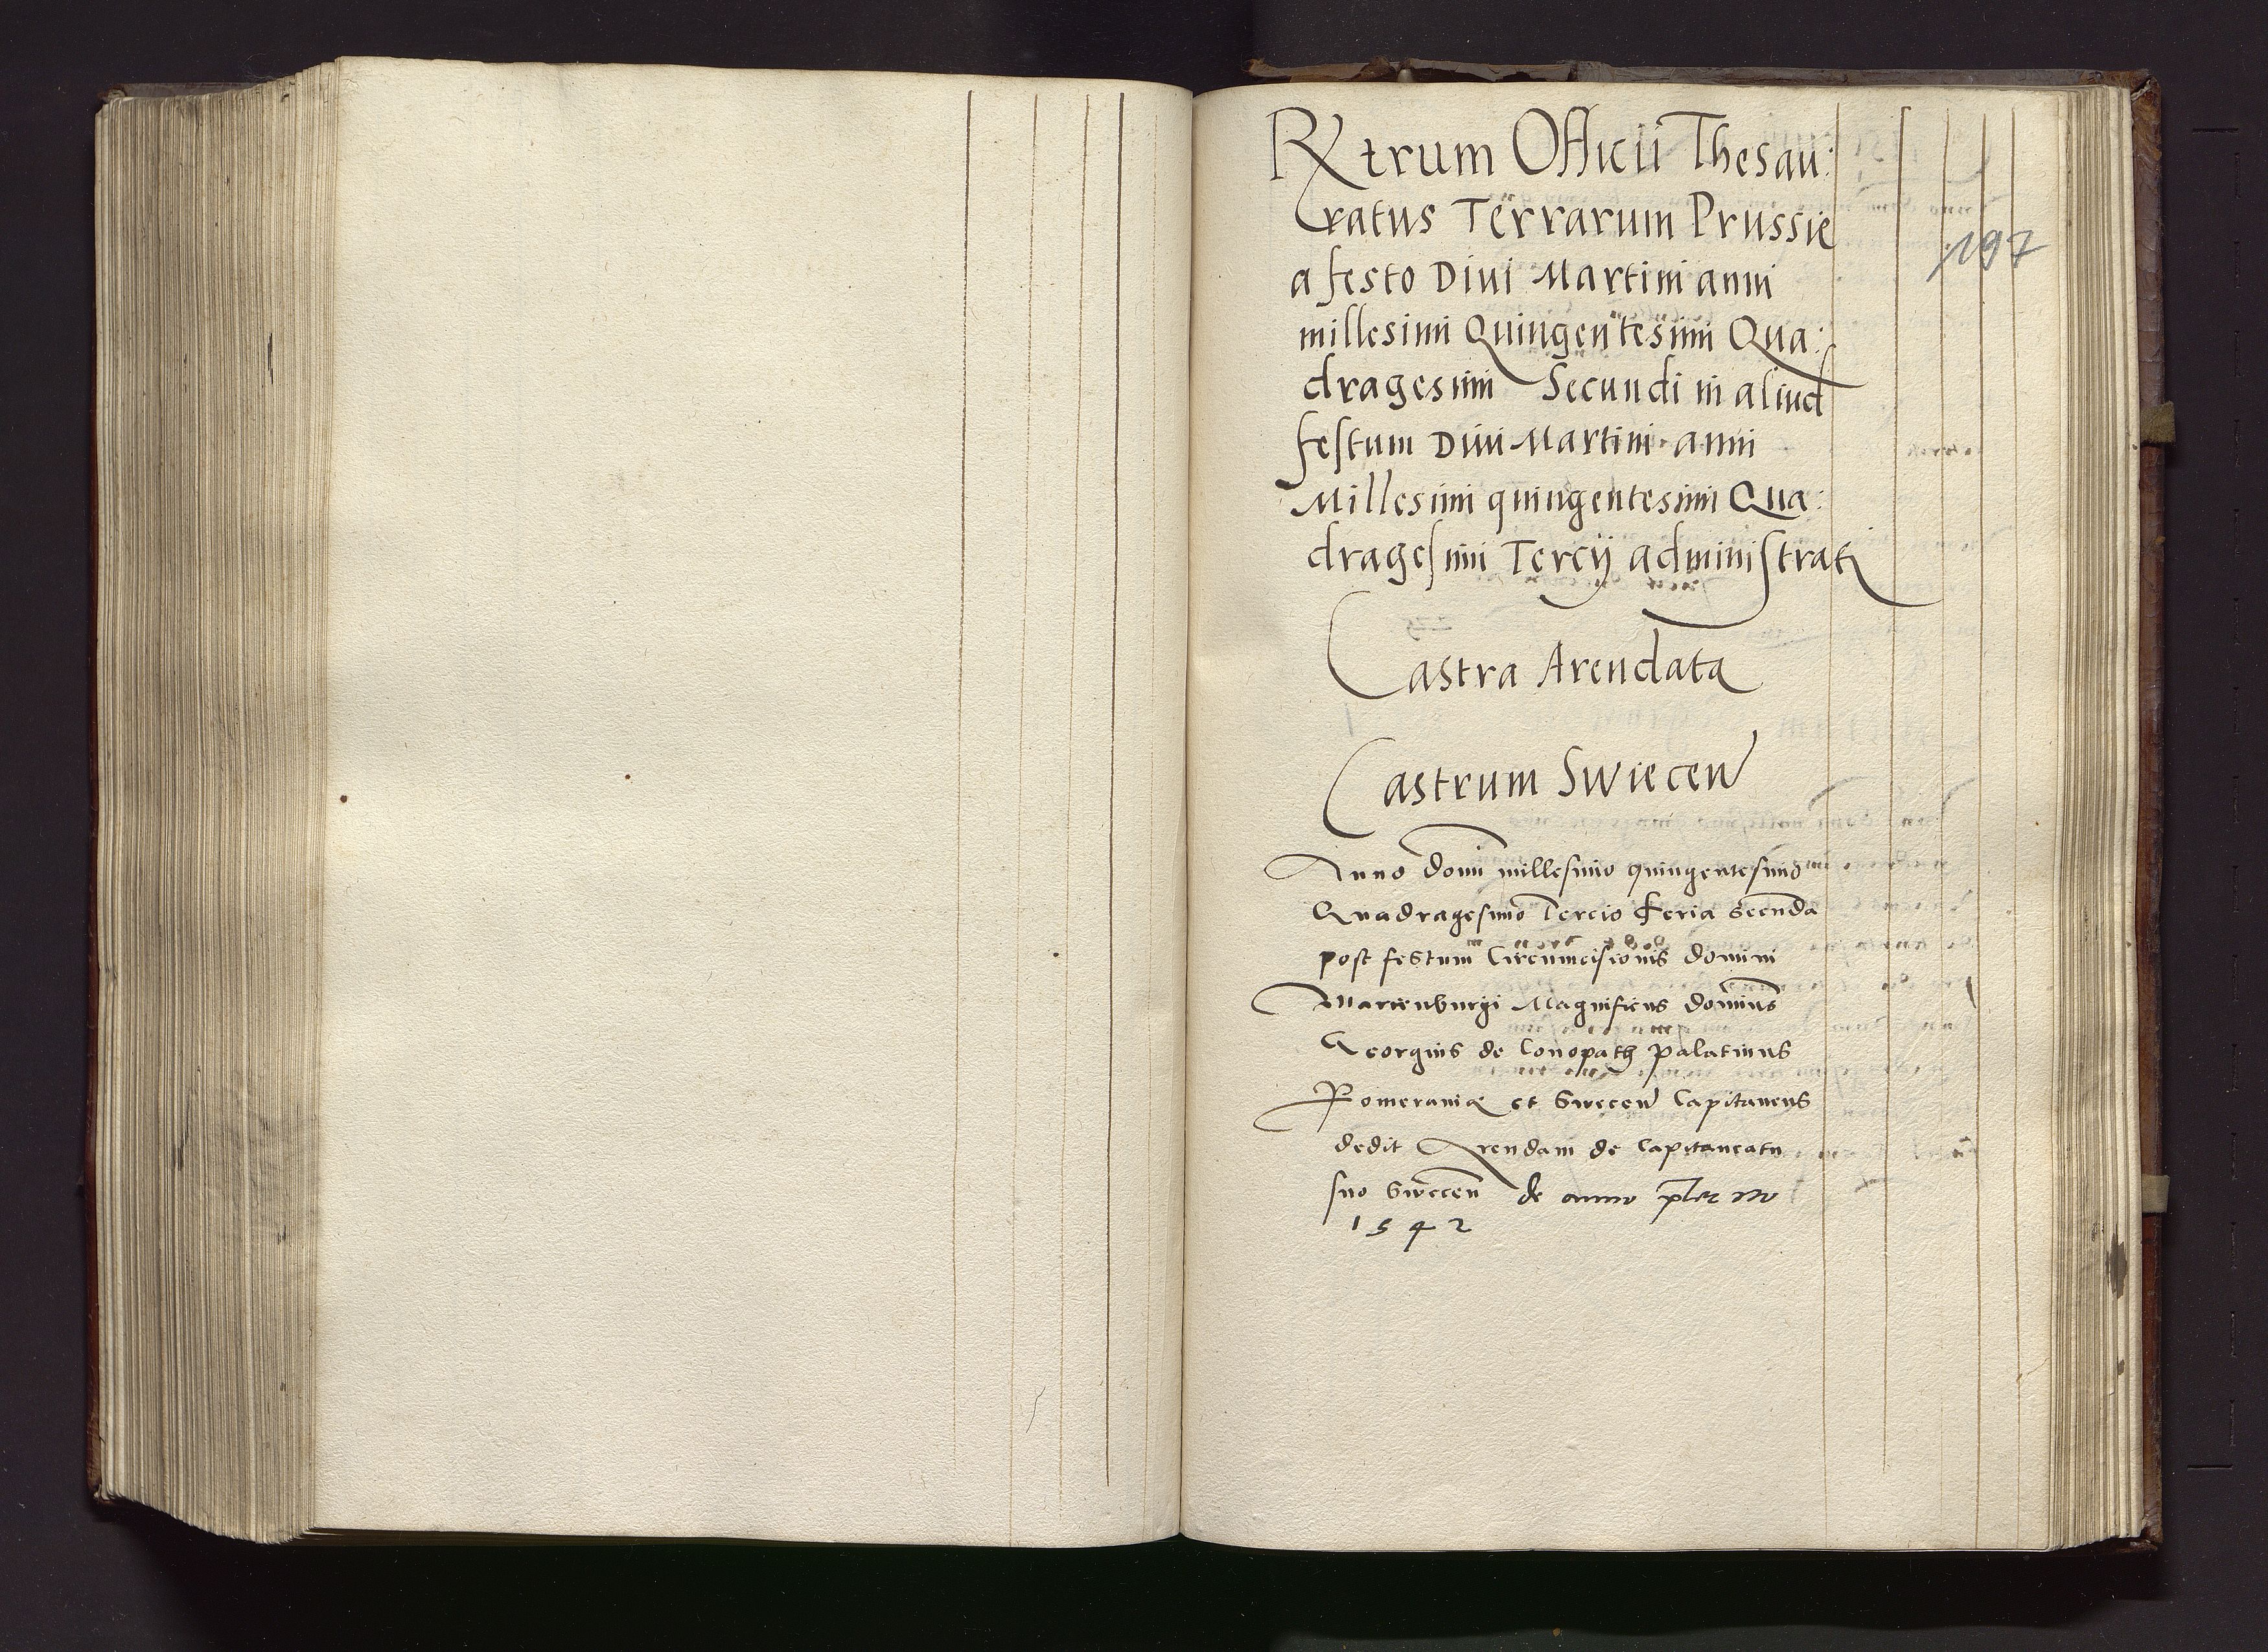 Rxtrum Officii Thesau:
ratus Terrarum Prussie
197
a festo Divi Martini anni
millesimi Quingentesimi Qua:
dragesimi Secundi in aliud
festum Divi Martini anni
Millesimi quingentesimi Qua:
dragesimi Tercij administrati
Castra Arendata
Castrum Swiecen
Anno domi millesimo quingentesimo
Quadragesimo Tercio feria secunda
post festum Circumcisionis domini
Marienburgi Magnificus dominus
Georgius de Conopath palatinus
Pomeraniae et Swecen Capitaneus
dedit Arendam de Capitaneatu
suo Swecen de anno
1542